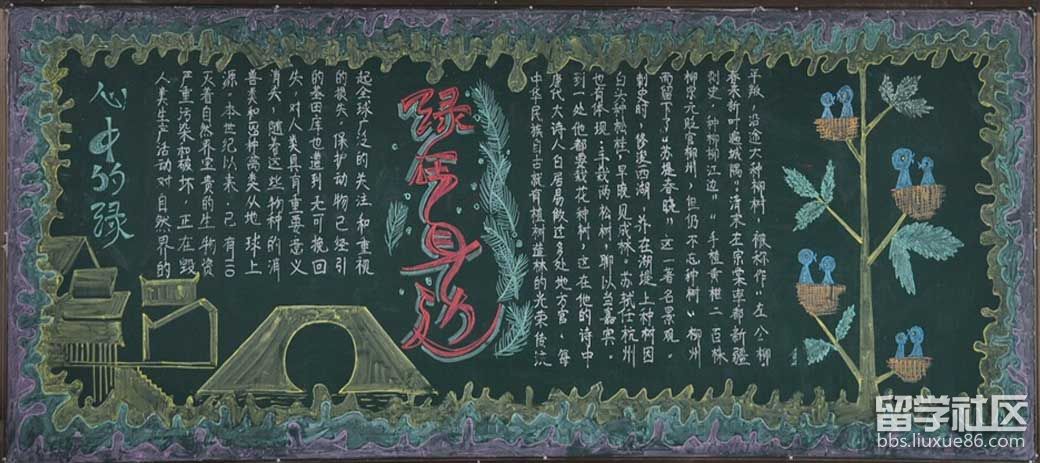 心中的绿
人类生产活动对自然界的
严重污染和破坏，正在毁
灭着自然界宝贵的生物资
源。本世纪以来，已有110
种鸟类从地球上
消失。随着这些物种的消
失，对人类具有重要意义
的基因库也遭到无可挽回
的损失。保护动物已经引
起全球广泛的关注和重视
绿在身边
中华民族自古就有植树造林的光荣传统
唐代大诗人白居易做过多处地方官，每
到一处他都要栽花种树，这在他的诗中
也有体现：手栽两松树，聊以当嘉宾。
白头种松桂，早晚见成林。苏轼任杭州
刺史时，修浚西湖，并在湖堤上种树因
而留下了“苏堤春晓”这一著名景观。
柳宗元贬官柳州，但仍不忘种树“柳州
刺史，种柳柳江边”“手植黄柑二百株
春来新叶遍城隅”清末左宗棠率部新疆
平叛，沿途大种柳树，被称作“左公柳
留学社区
bbs.liuxue86.com